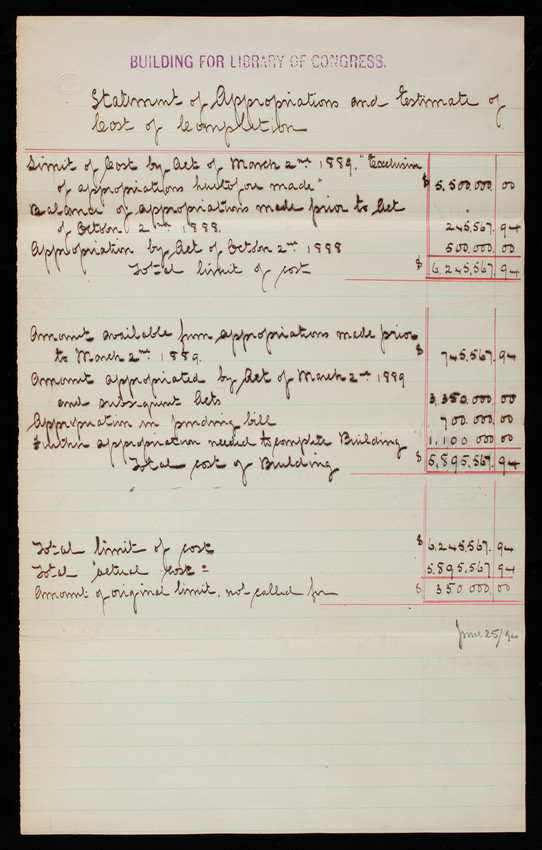 BUILDING FOR LIBRARY OF CONGRESS.
Statement of Appropriations and Estimate of
Cost of Completion
Limit of Cost by Act of March 2nd 1889, "Exclusive
of appropriations heretofore made" $ 5,500,000.00
Balance of appropriations made prior to Act
of October 2nd 1888. 245,567.94
Appropriation by Act of October 2nd 1888 500,000.00
Total limit of cost $ 6,245,567.94
Amount available from appropriations made prior
to March 2nd 1889. $ 745,567.94
Amount appropriated by Act of March 2nd 1889
and subsequent Acts 3,350,000.00
Appropriation in pending bill 700,000.00
Further appropriation needed to complete Building 1,100,000.00
Total cost of Building $ 5,895,567.94
Total limit of cost $ 6,245,567.94
Total "actual cost" 5,895,567.94
Amount of original limit, not called for $ 350,000.00
June 25/94